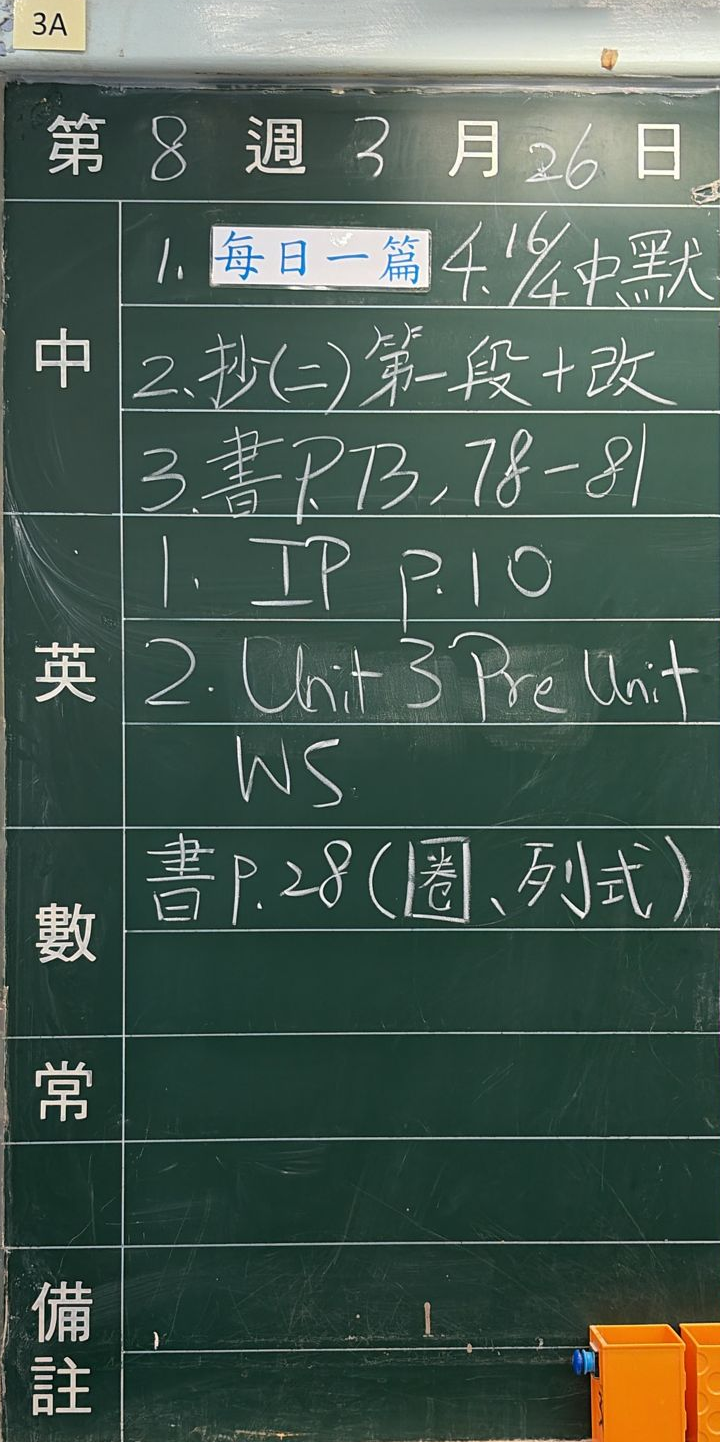 3A
第 8 週 3 月 26 日
中
1. 每日一篇 4. 16/4 中默
2. 抄(二)第一段+改
3. 書P.73、78-81
英
1. IP p.10
2. Unit 3 Pre Unit
WS
數
書p.28(圈、列式)
常
備註